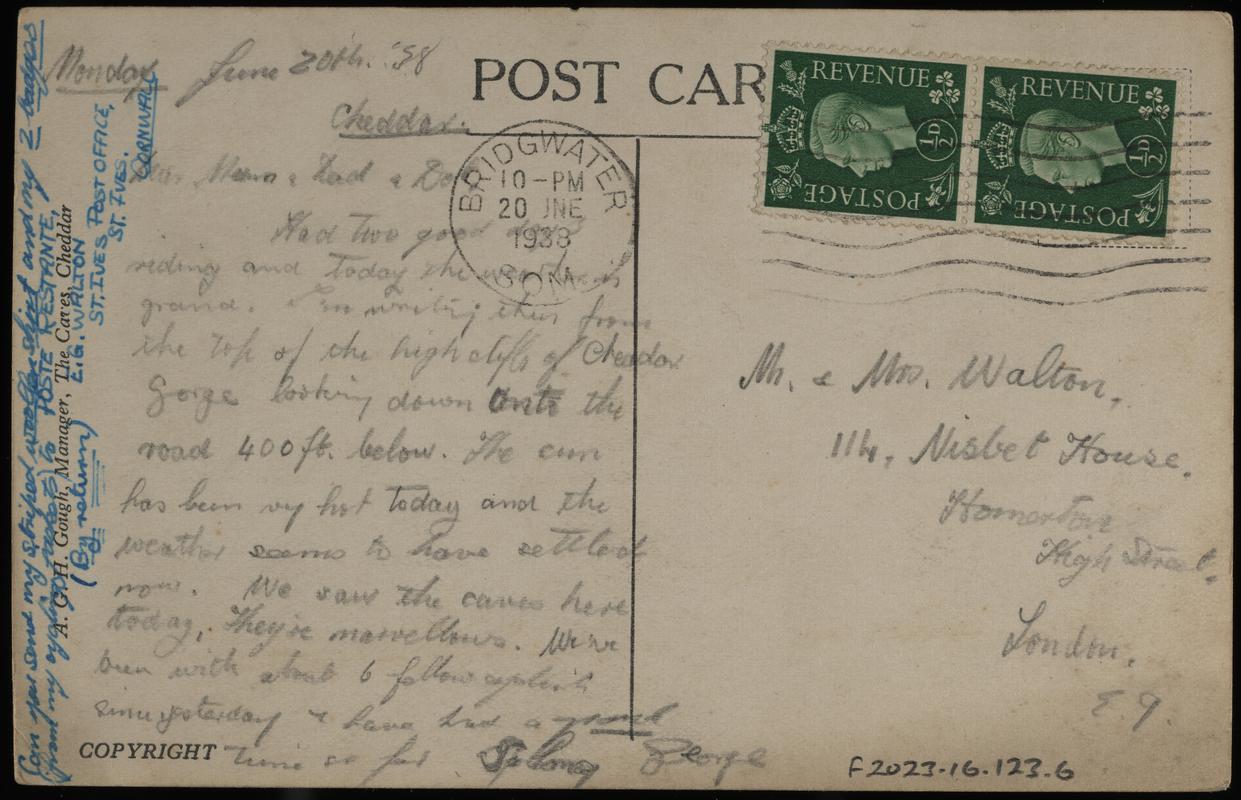 Monday June 20th. '38
Cheddar.
Dear Mum & Dad & Do
Had two good days
riding and today the weather is
grand. I'm writing this from
the top of the high cliffs of Cheddar
Gorge looking down onto the
road 400ft. below. The sun
has been vy hot today and the
weather seems to have settled
now. We saw the caves here
today, They're marvellous. We've
been with about 6 fellow cyclists
since yesterday & have had a grand
time so far George
POST CAR
BRIDGWATER
10-PM
20 JNE
1938
SOM
REVENUE
½D
POSTAGE
REVENUE
½D
POSTAGE
Mr. & Mrs. Walton,
114, Nisbet House.
Homerton
High Street.
London,
E.9.
Can you send my striped woollen shirt and my 2 badges
from my cycling jacket) to POSTE RESTANTE,
(By return) E.G. WALTON
ST.IVES POST OFFICE,
ST. IVES.
CORNWALL
A. G. H. Gough, Manager, The Caves, Cheddar
COPYRIGHT
F2023.16.123.6